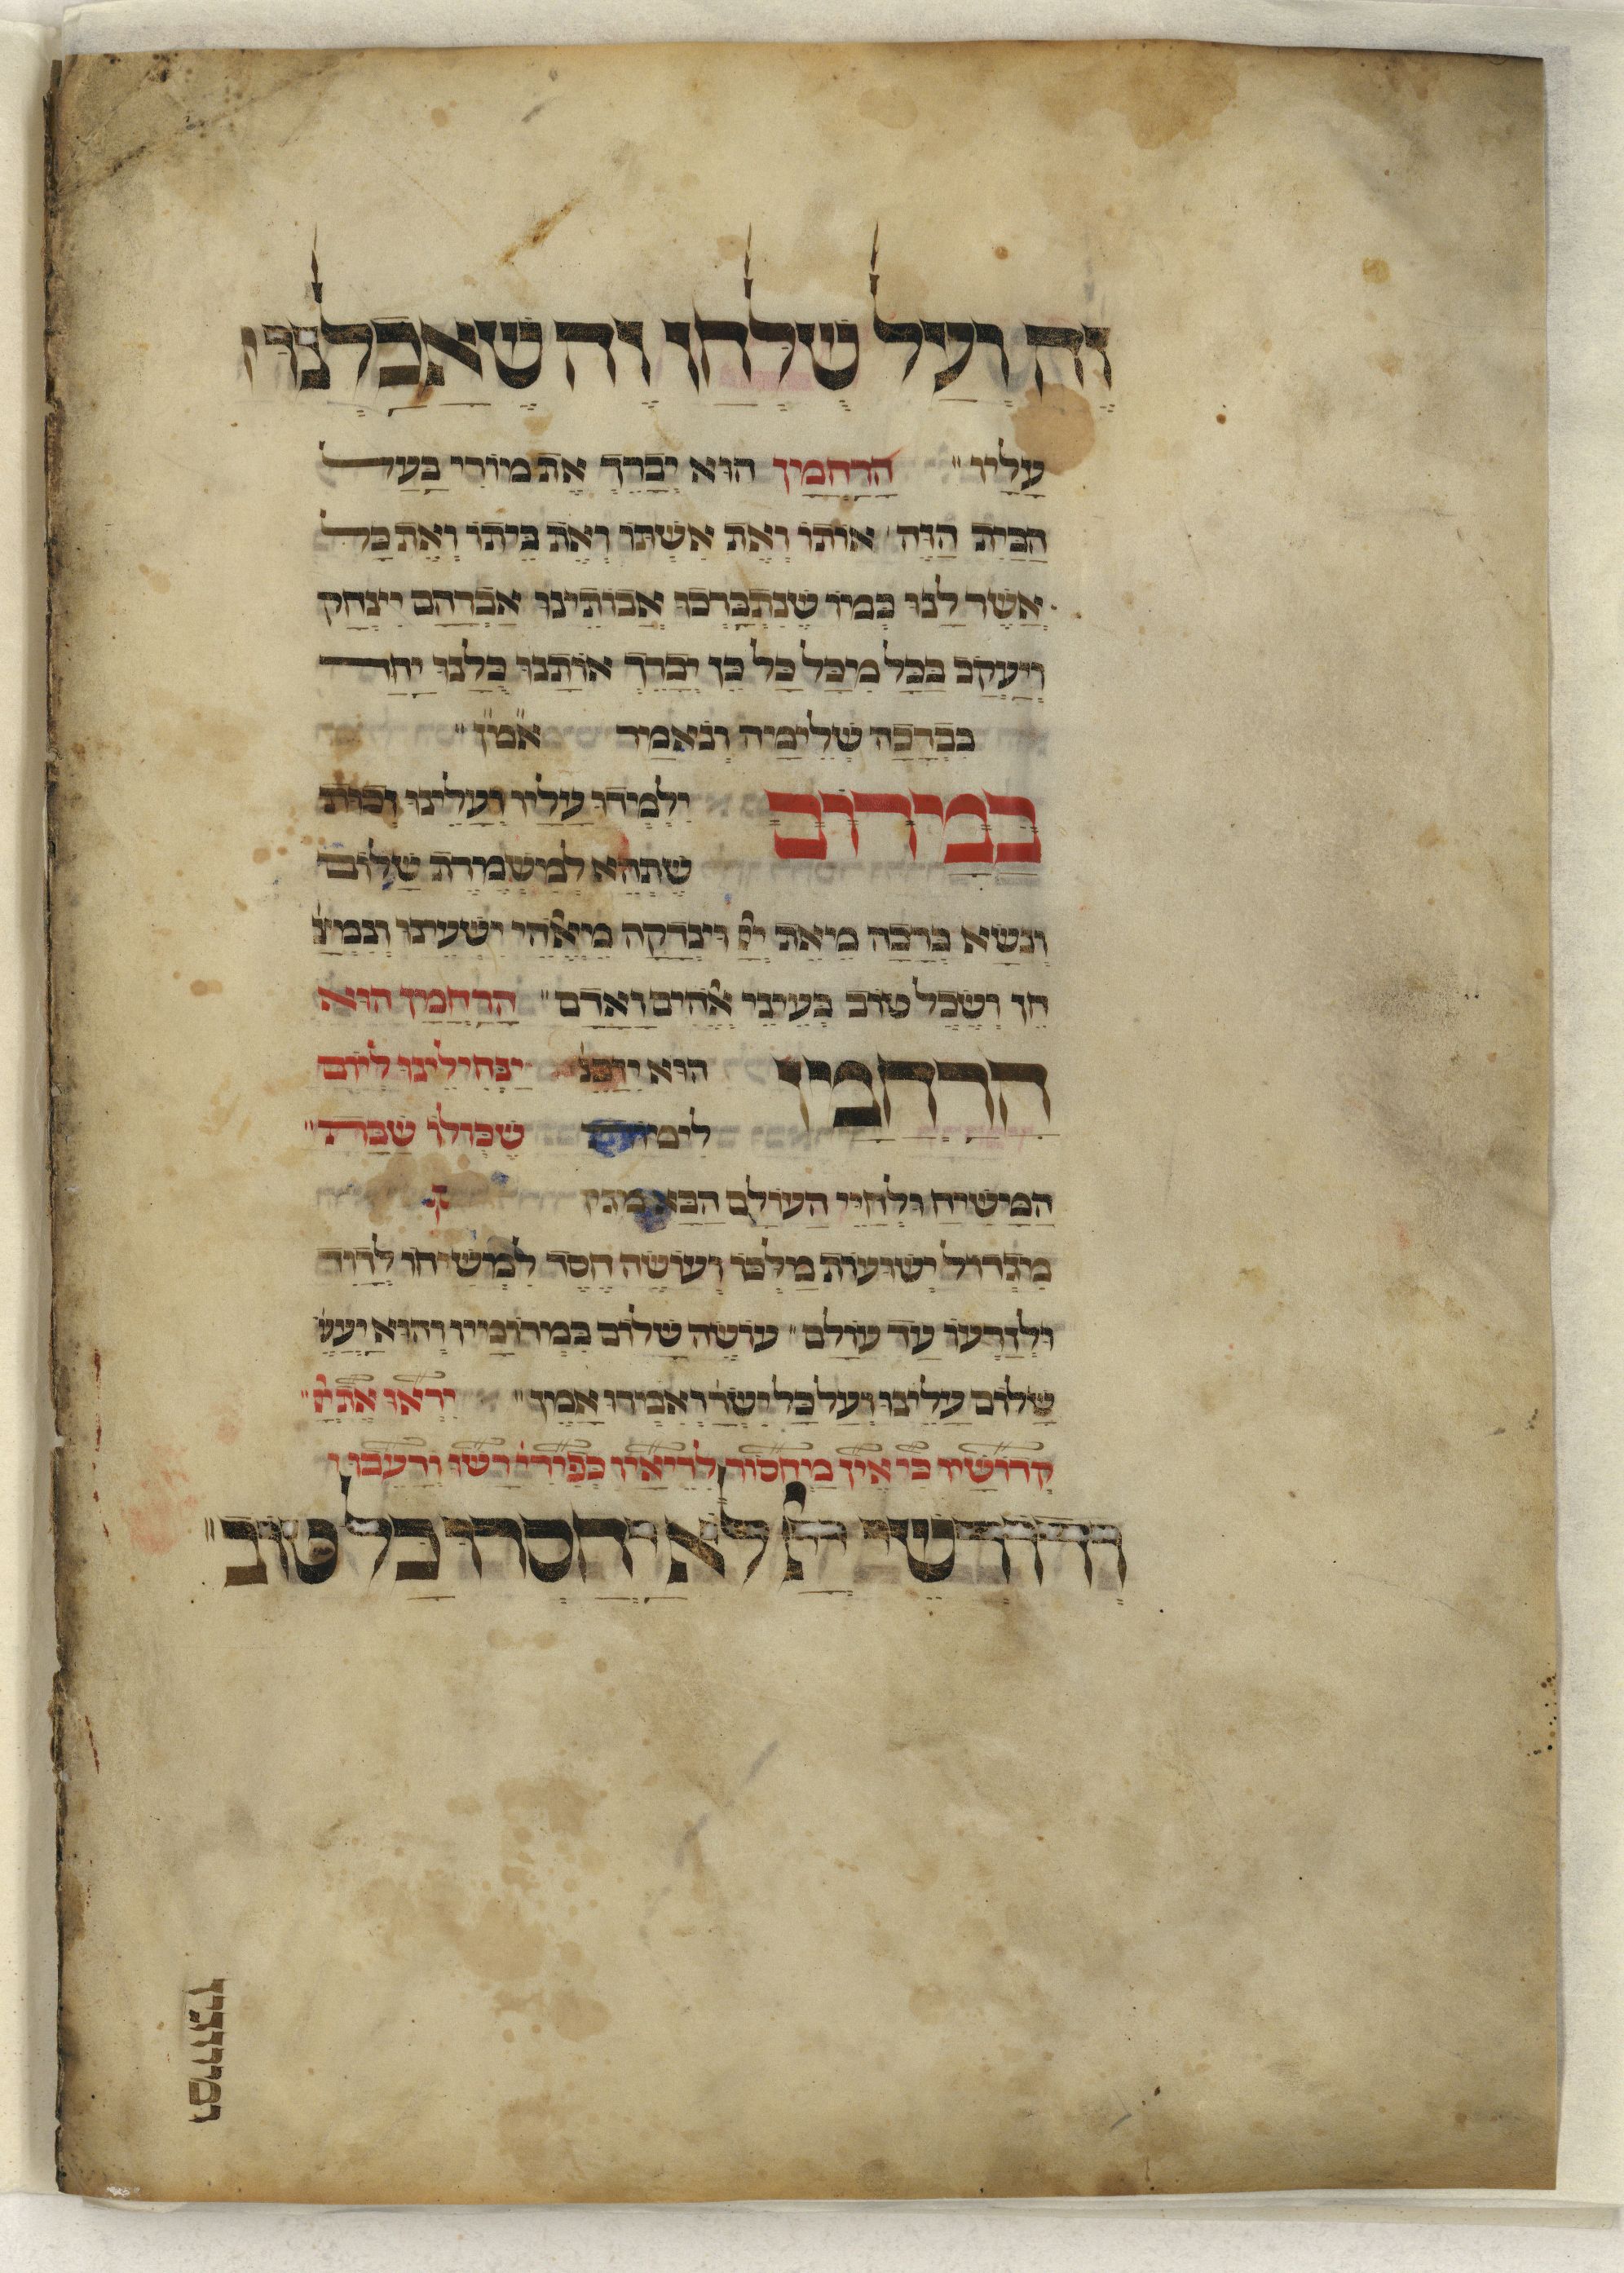 זה ועל שלחן זה שאכלנו
עליו הרחמן הוא יברך את מורי בעל
הבית הזה אותו ואת אשתו ואת ביתו ואת כל
אשר לנו כמו שנתברכו אבותינו אברהם יצחק
ויעקב בכל מיכל כל כן יברך אותנו כלנו יחד
בברכה שלימה ונאמר אמן
במרום
ילמדו עליו ועלינו זכות
שתהא למשמרת שלום
ונשא ברכה מאת יי וצדקה מאלהי ישעינו ונמצ
חן ושכל טוב בעיני אלהים ואדם הרחמן הוא
הרחמן
הוא יזכנ ינחילנו ליום
לימות שכולו שבת
המשיח ולחיי העולם הבא
מגדול ישועות מלכו ועושה חסד למשיחו לדוד
ולזרעו עד עולם עושה שלום במרומיו והוא יעש
שלום עלינו ועל כל ישר ואמרו אמן יראו את יי
קדושיו כי אין מחסור ליראיו כפירי רשו ורעבו
ודורשי יי לא יחסרו כל טוב